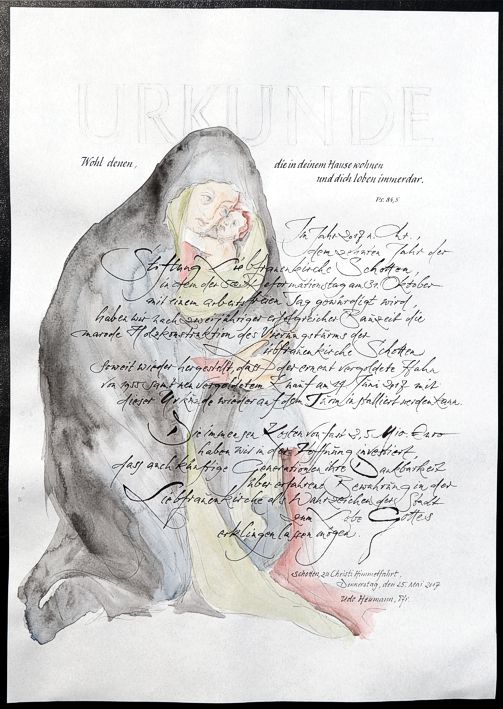 URKUNDE
Wohl denen, die in deinem Hause wohnen
und dich loben immerdar.
Ps. 84,5
Im Jahr 2017 n. Chr.,
dem zehnten Jahr der
Stiftung Liebfrauenkirche Schotten,
in dem der Reformationstag am 31. Oktober
mit einem arbeitsfreien Tag gewürdigt wird,
haben wir nach zweijähriger erfolgreicher Bauzeit die
marode Holzkonstruktion des Vierungsturms der
Liebfrauenkirche Schotten
soweit wieder hergestellt, dass der erneut vergoldete Hahn
von 1955 samt neu vergoldetem Knauf am Juni 2017 mit
dieser Urkunde wieder auf dem Turm installiert werden kann.
Die immensen Kosten von fast 2,5 Mio. Euro
haben wir in der Hoffnung investiert,
dass auch künftige Generationen ihre Dankbarkeit
über erfahrene Bewahrung in der
Liebfrauenkirche als Wahrzeichen der Stadt
zum Lobe Gottes
erklingen lassen mögen.
Schotten, zu Christi Himmelfahrt,
Donnerstag, den 25. Mai 2017
Udo Heumann, Pfr.